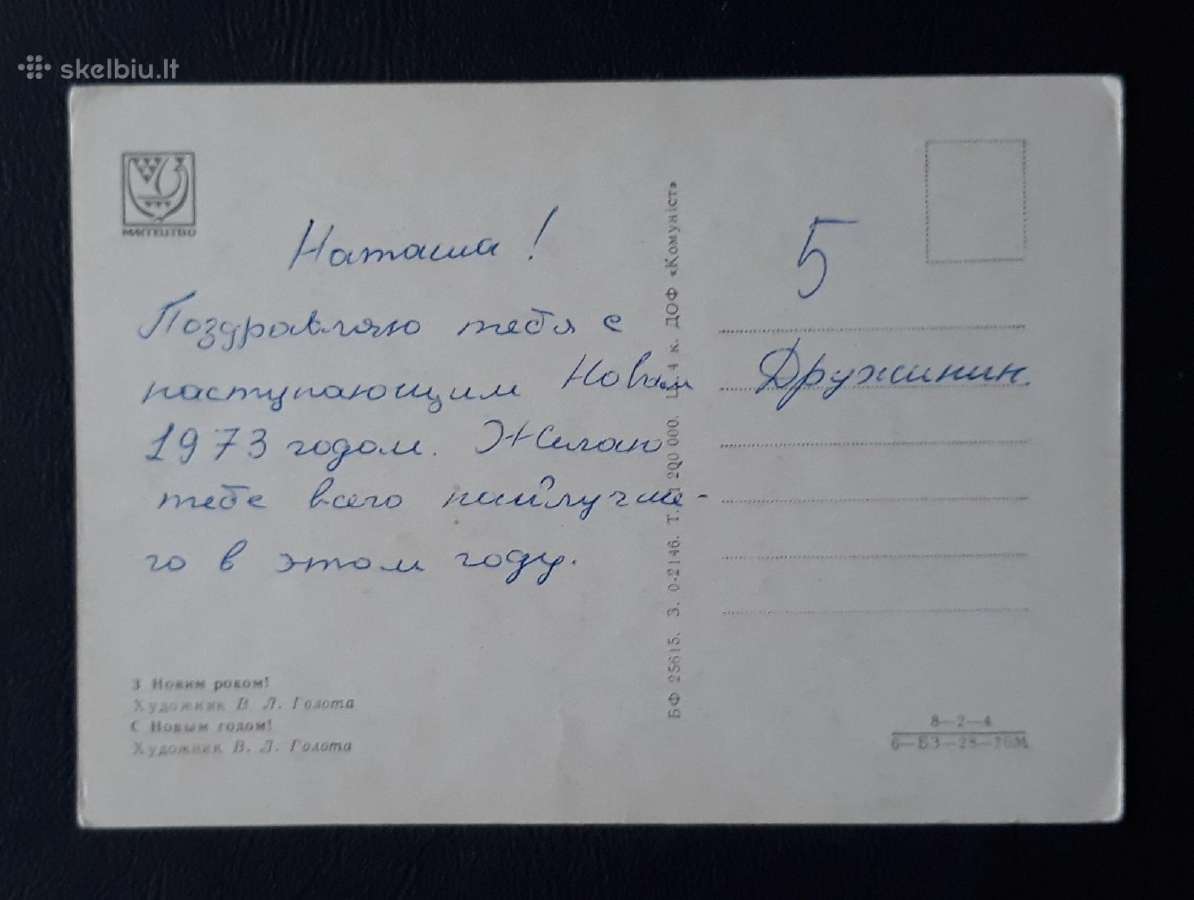 skelbiu.lt
МИСТЕЦТВО
Наташа!
Поздравляю тебя с
наступающим Новым
1973 годом. Желаю
тебе всего наилучше-
го в этом году.
З Новим роком!
Художник В. Л. Голота
С Новым годом!
Художник В. Л. Голота
БФ 25615. З. 0-2146. Т. 1 200 000. Ц. 4 к. ДОФ «Комуніст»
5
Дружинин.
8—2—4
6—БЗ—28—70М